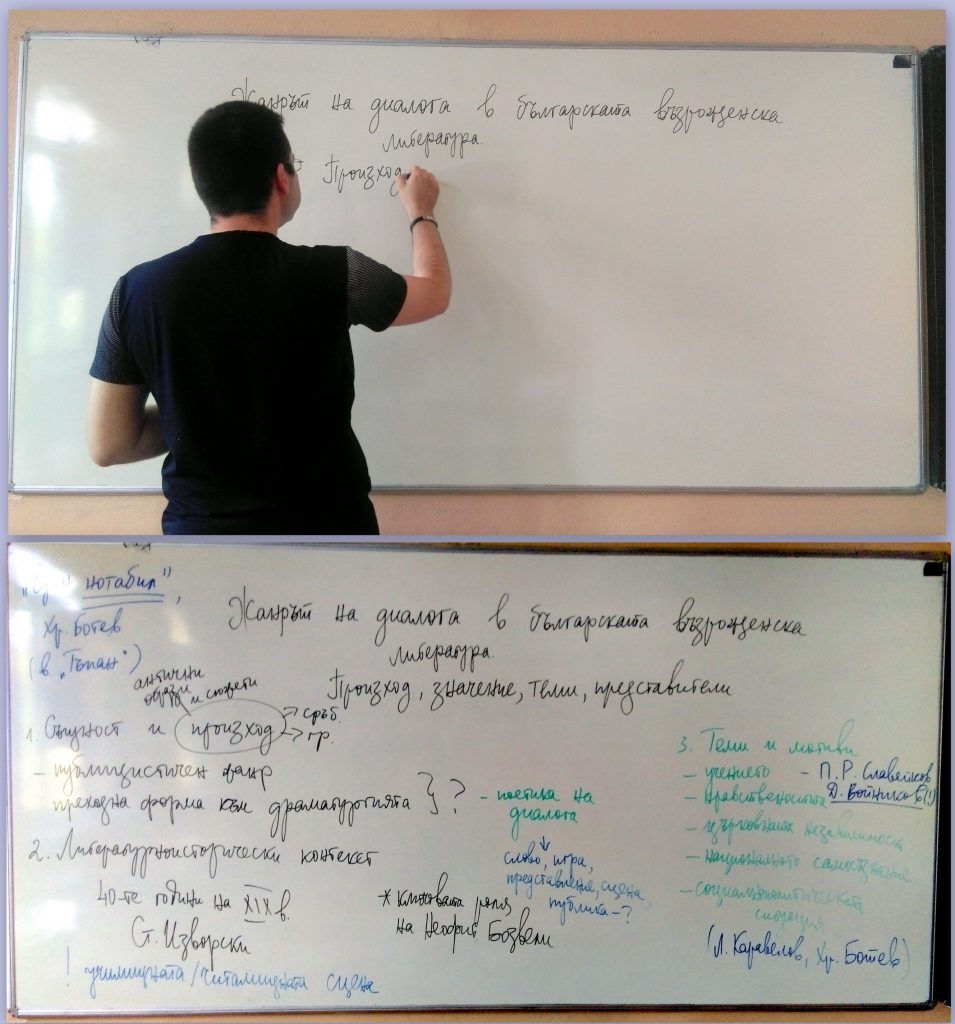 Жанрът на диалога в българската възрожденска
литература.
Произход
нотабил",
Хр. Ботев
(в. „Тъпан")
Жанрът на диалога в българската възрожденска
литература.
Произход, значение, теми, представители
антични
образи и сюжети
1. Същност и произход → сръб.
→ гр.
- публицистичен жанр
преходна форма към драматургията } ?
- поетика на
диалога
↓
слово, игра,
представление, сцена,
публика - ?
2. Литературноисторически контекст
40-те години на XIX в.
Ст. Изворски
* ключовата роля
на Неофит Бозвели
! училищната/читалищната сцена
3. Теми и мотиви
- учението - П. Р. Славейков
- нравствеността Д. Войников (!)
- църковната независимост
- националното самосъзнание
- социалнополитическата
ситуация
(Л. Каравелов, Хр. Ботев)